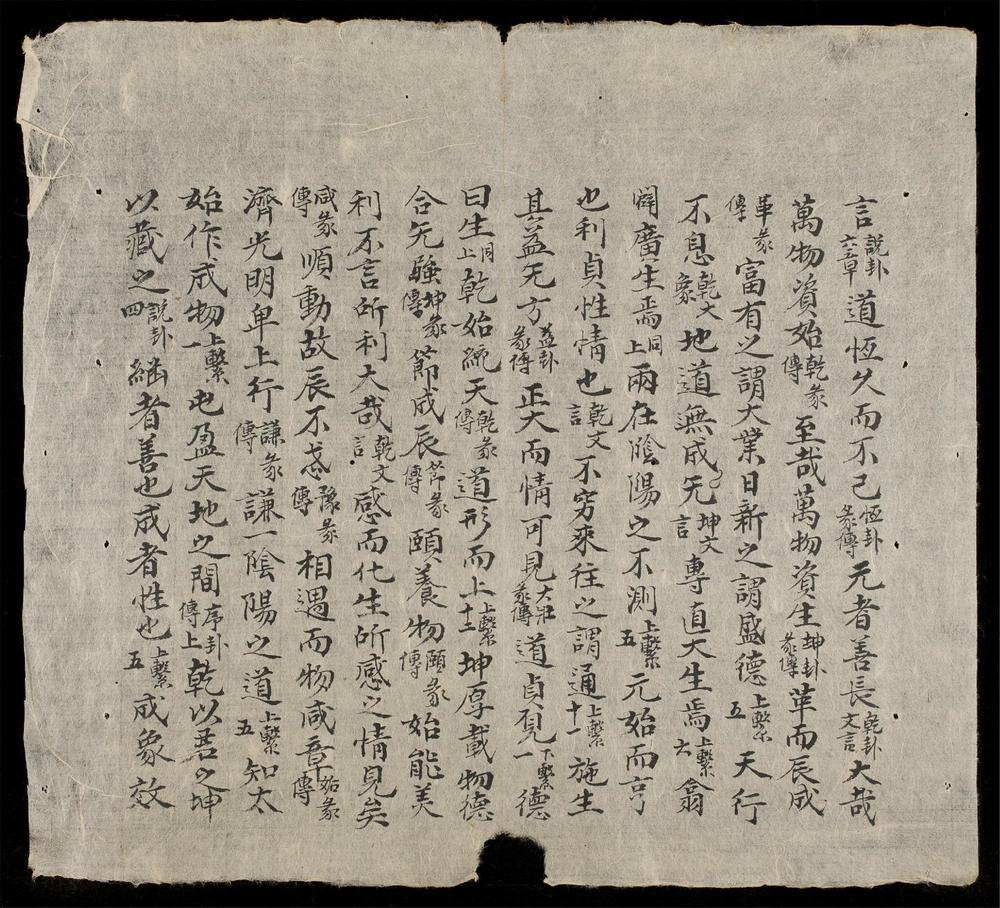 言說卦六章道恆久而不已恆卦彖傳元者善長乾卦文言大哉
萬物資始乾彖傳至哉萬物資生坤卦彖傳革而辰成
革彖傳富有之謂大業日新之謂盛德上繫五天行
不息乾大象地道無成无坤文言專直大生焉上繫六翕
闢廣生焉同上兩在陰陽之不測上繫五元始而亨
也利貞性情也乾文言不窮來往之謂通上繫十一施生
其益无方益卦彖傳正大而情可見大壯彖傳道貞見下繫一德
曰生同上乾始統天乾彖傳道形而上上繫十二坤厚載物德
合无疆坤彖傳節成辰節彖傳頤養物頤彖傳始能美
利不言所利大哉乾文言感而化生所感之情見矣
咸彖傳順動故辰不忒豫彖傳相遇而物咸章姤彖傳
濟光明卑上行謙彖傳謙一陰陽之道上繫五知太
始作成物上繫一屯盈天地之間序卦傳上乾以君之坤
以藏之說卦四繼者善也成者性也上繫五成象效